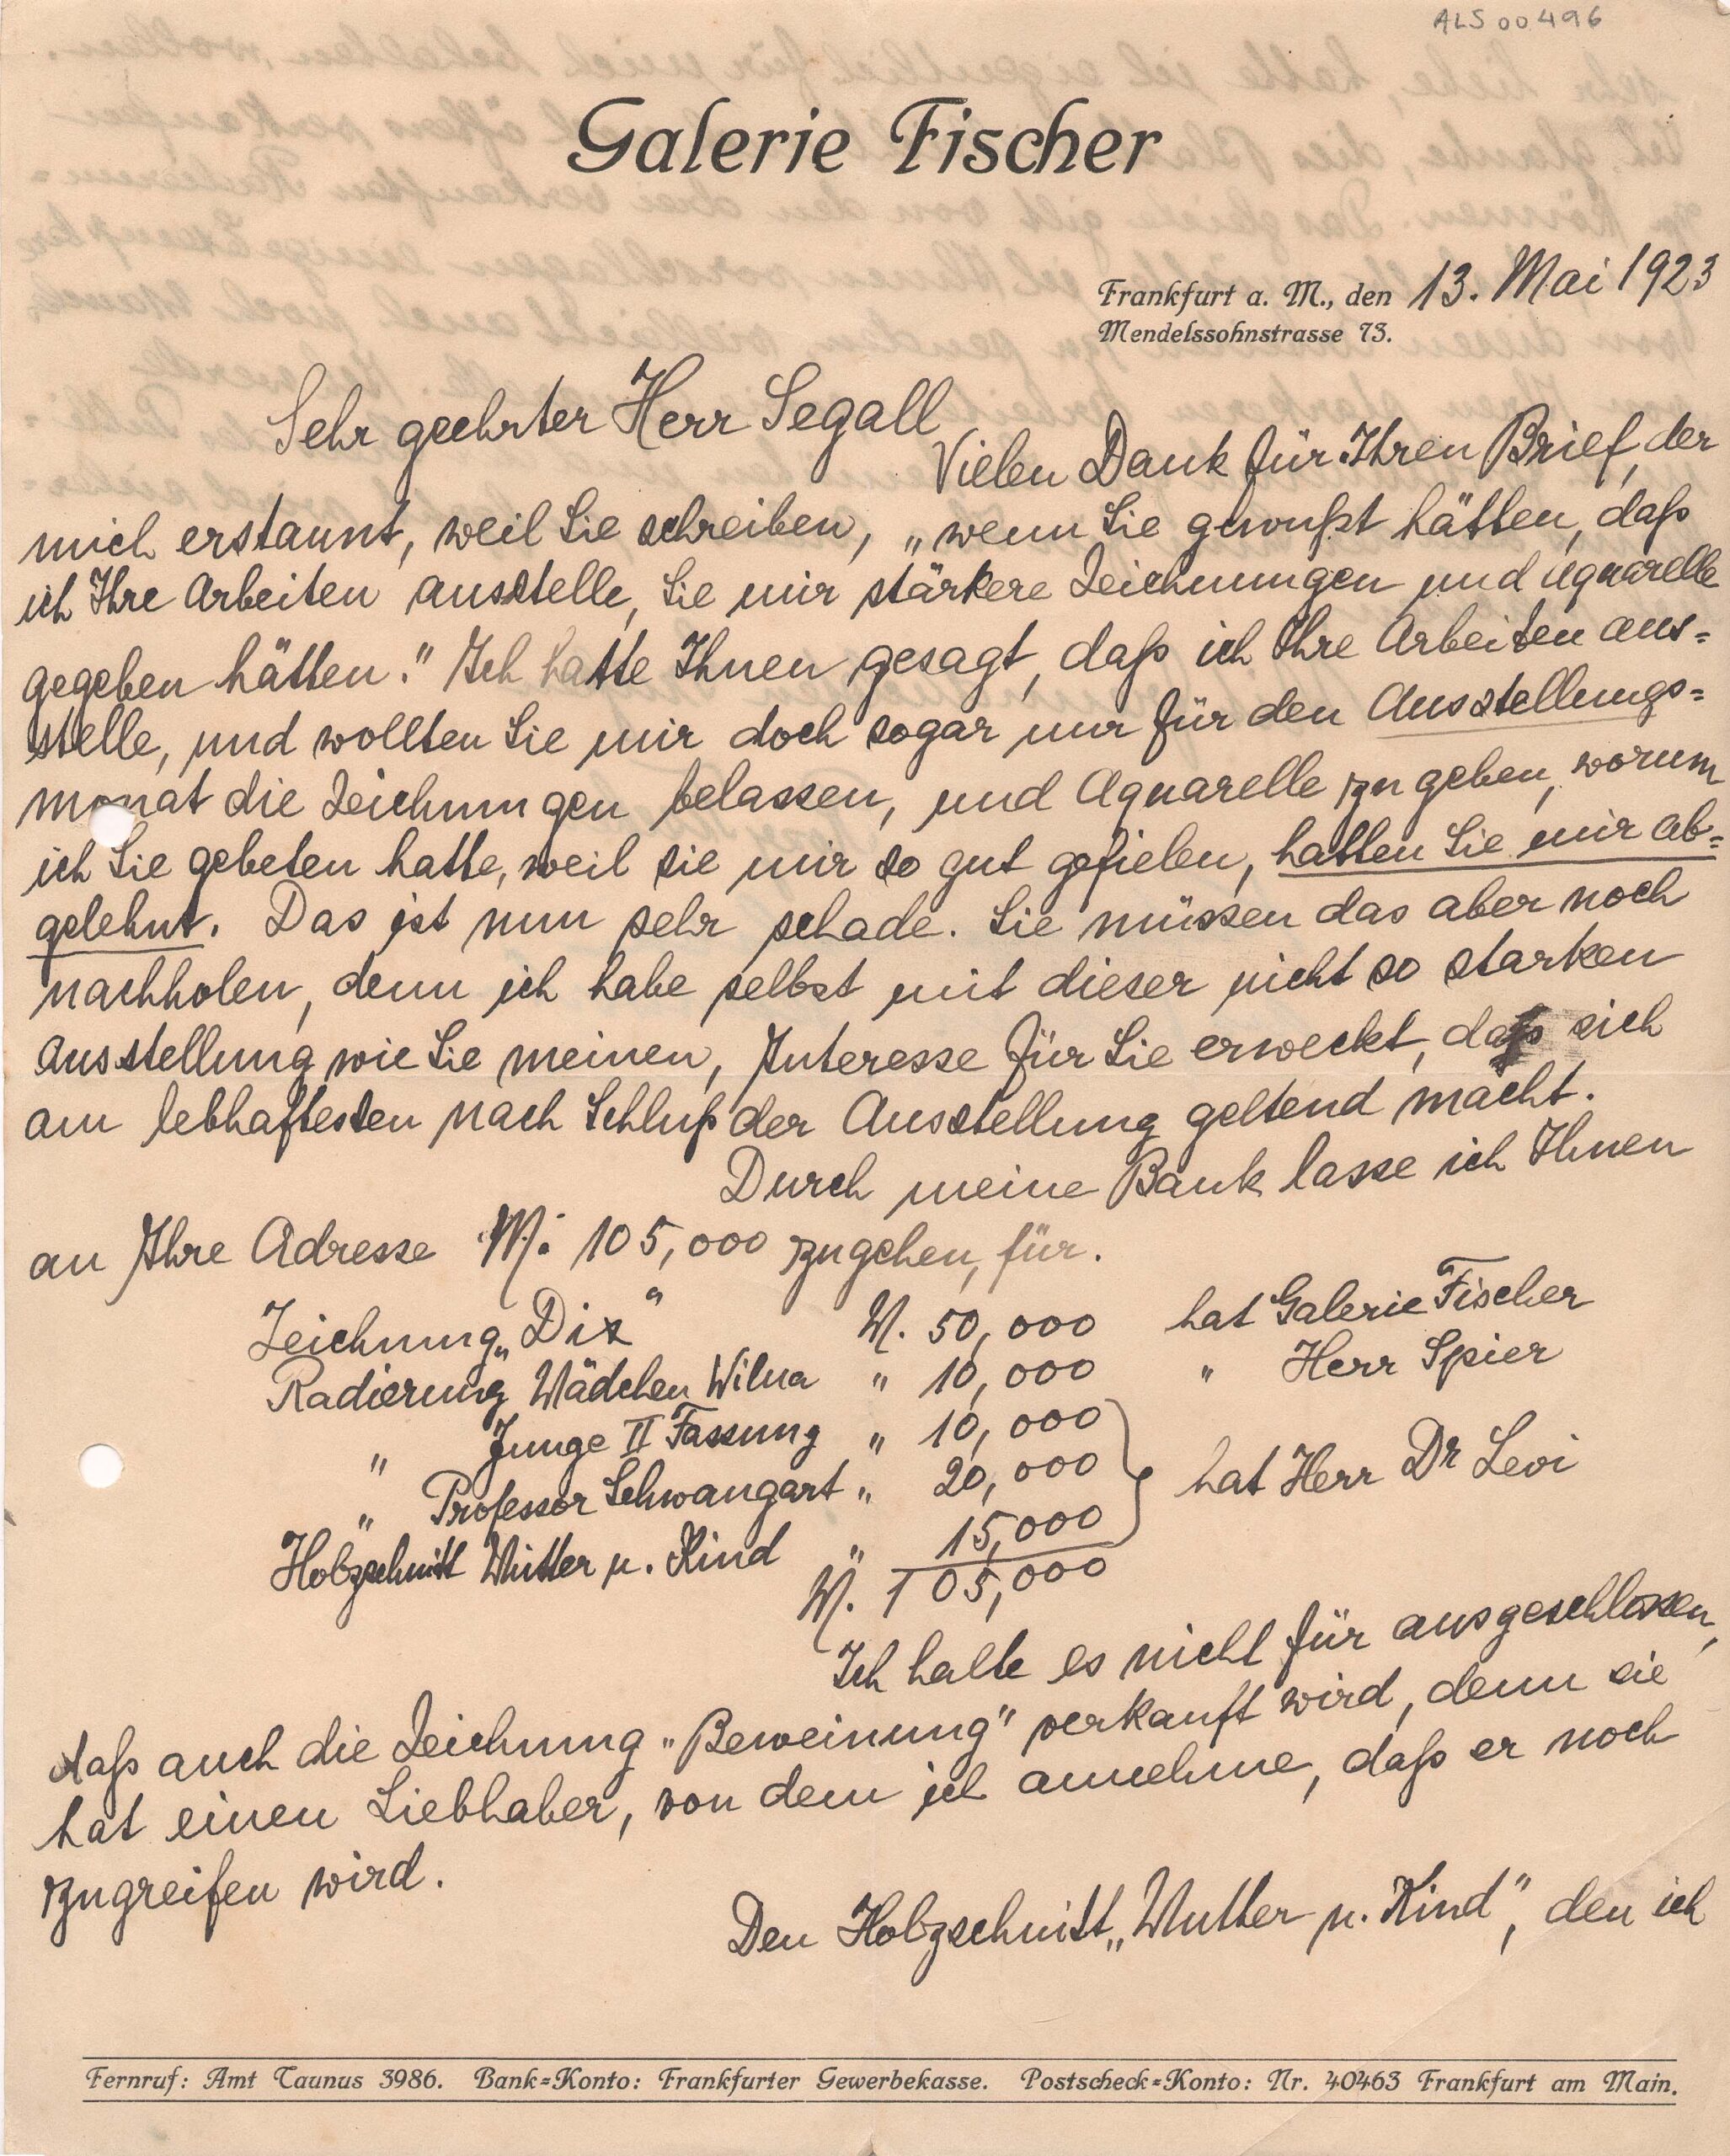 ALS 00496
Galerie Fischer
Frankfurt a. M., den 13. Mai 1923
Mendelssohnstrasse 73.
Sehr geehrter Herr Segall
Vielen Dank für Ihren Brief, der
mich erstaunt, weil Sie schreiben, „wenn Sie gewußt hätten, daß
ich Ihre Arbeiten ausstelle, Sie mir stärkere Zeichnungen und Aquarelle
gegeben hätten." Ich hatte Ihnen gesagt, daß ich Ihre Arbeiten aus=
stelle, und wollten Sie mir doch sogar nur für den Ausstellungs=
monat die Zeichnungen belassen, und Aquarelle zu geben, worum
ich Sie gebeten hatte, weil sie mir so gut gefielen, hatten Sie mir ab=
gelehnt. Das ist nun sehr schade. Sie müssen das aber noch
nachholen, denn ich habe selbst mit dieser nicht so starken
Ausstellung wie Sie meinen, Interesse für Sie erweckt, daß sich
am lebhaftesten nach Schluß der Ausstellung geltend macht.
Durch meine Bank lasse ich Ihnen
an Ihre Adresse M: 105,000 zugehen, für.
Zeichnung „Dix" M. 50,000 hat Galerie Fischer
Radierung Mädchen Wilna " 10,000 " Herr Spier
" Junge II Fassung " 10,000
" Professor Schwangart " 20,000 hat Herr Dr Levi
Holzschnitt Mutter u. Kind " 15,000
M. 105,000
Ich halte es nicht für ausgeschlossen,
daß auch die Zeichnung „Beweinung" verkauft wird, denn sie
hat einen Liebhaber, von dem ich annehme, daß er noch
zugreifen wird.
Den Holzschnitt „Mutter u. Kind", den ich
Fernruf: Amt Taunus 3986. Bank=Konto: Frankfurter Gewerbekasse. Postscheck=Konto: Nr. 40463 Frankfurt am Main.